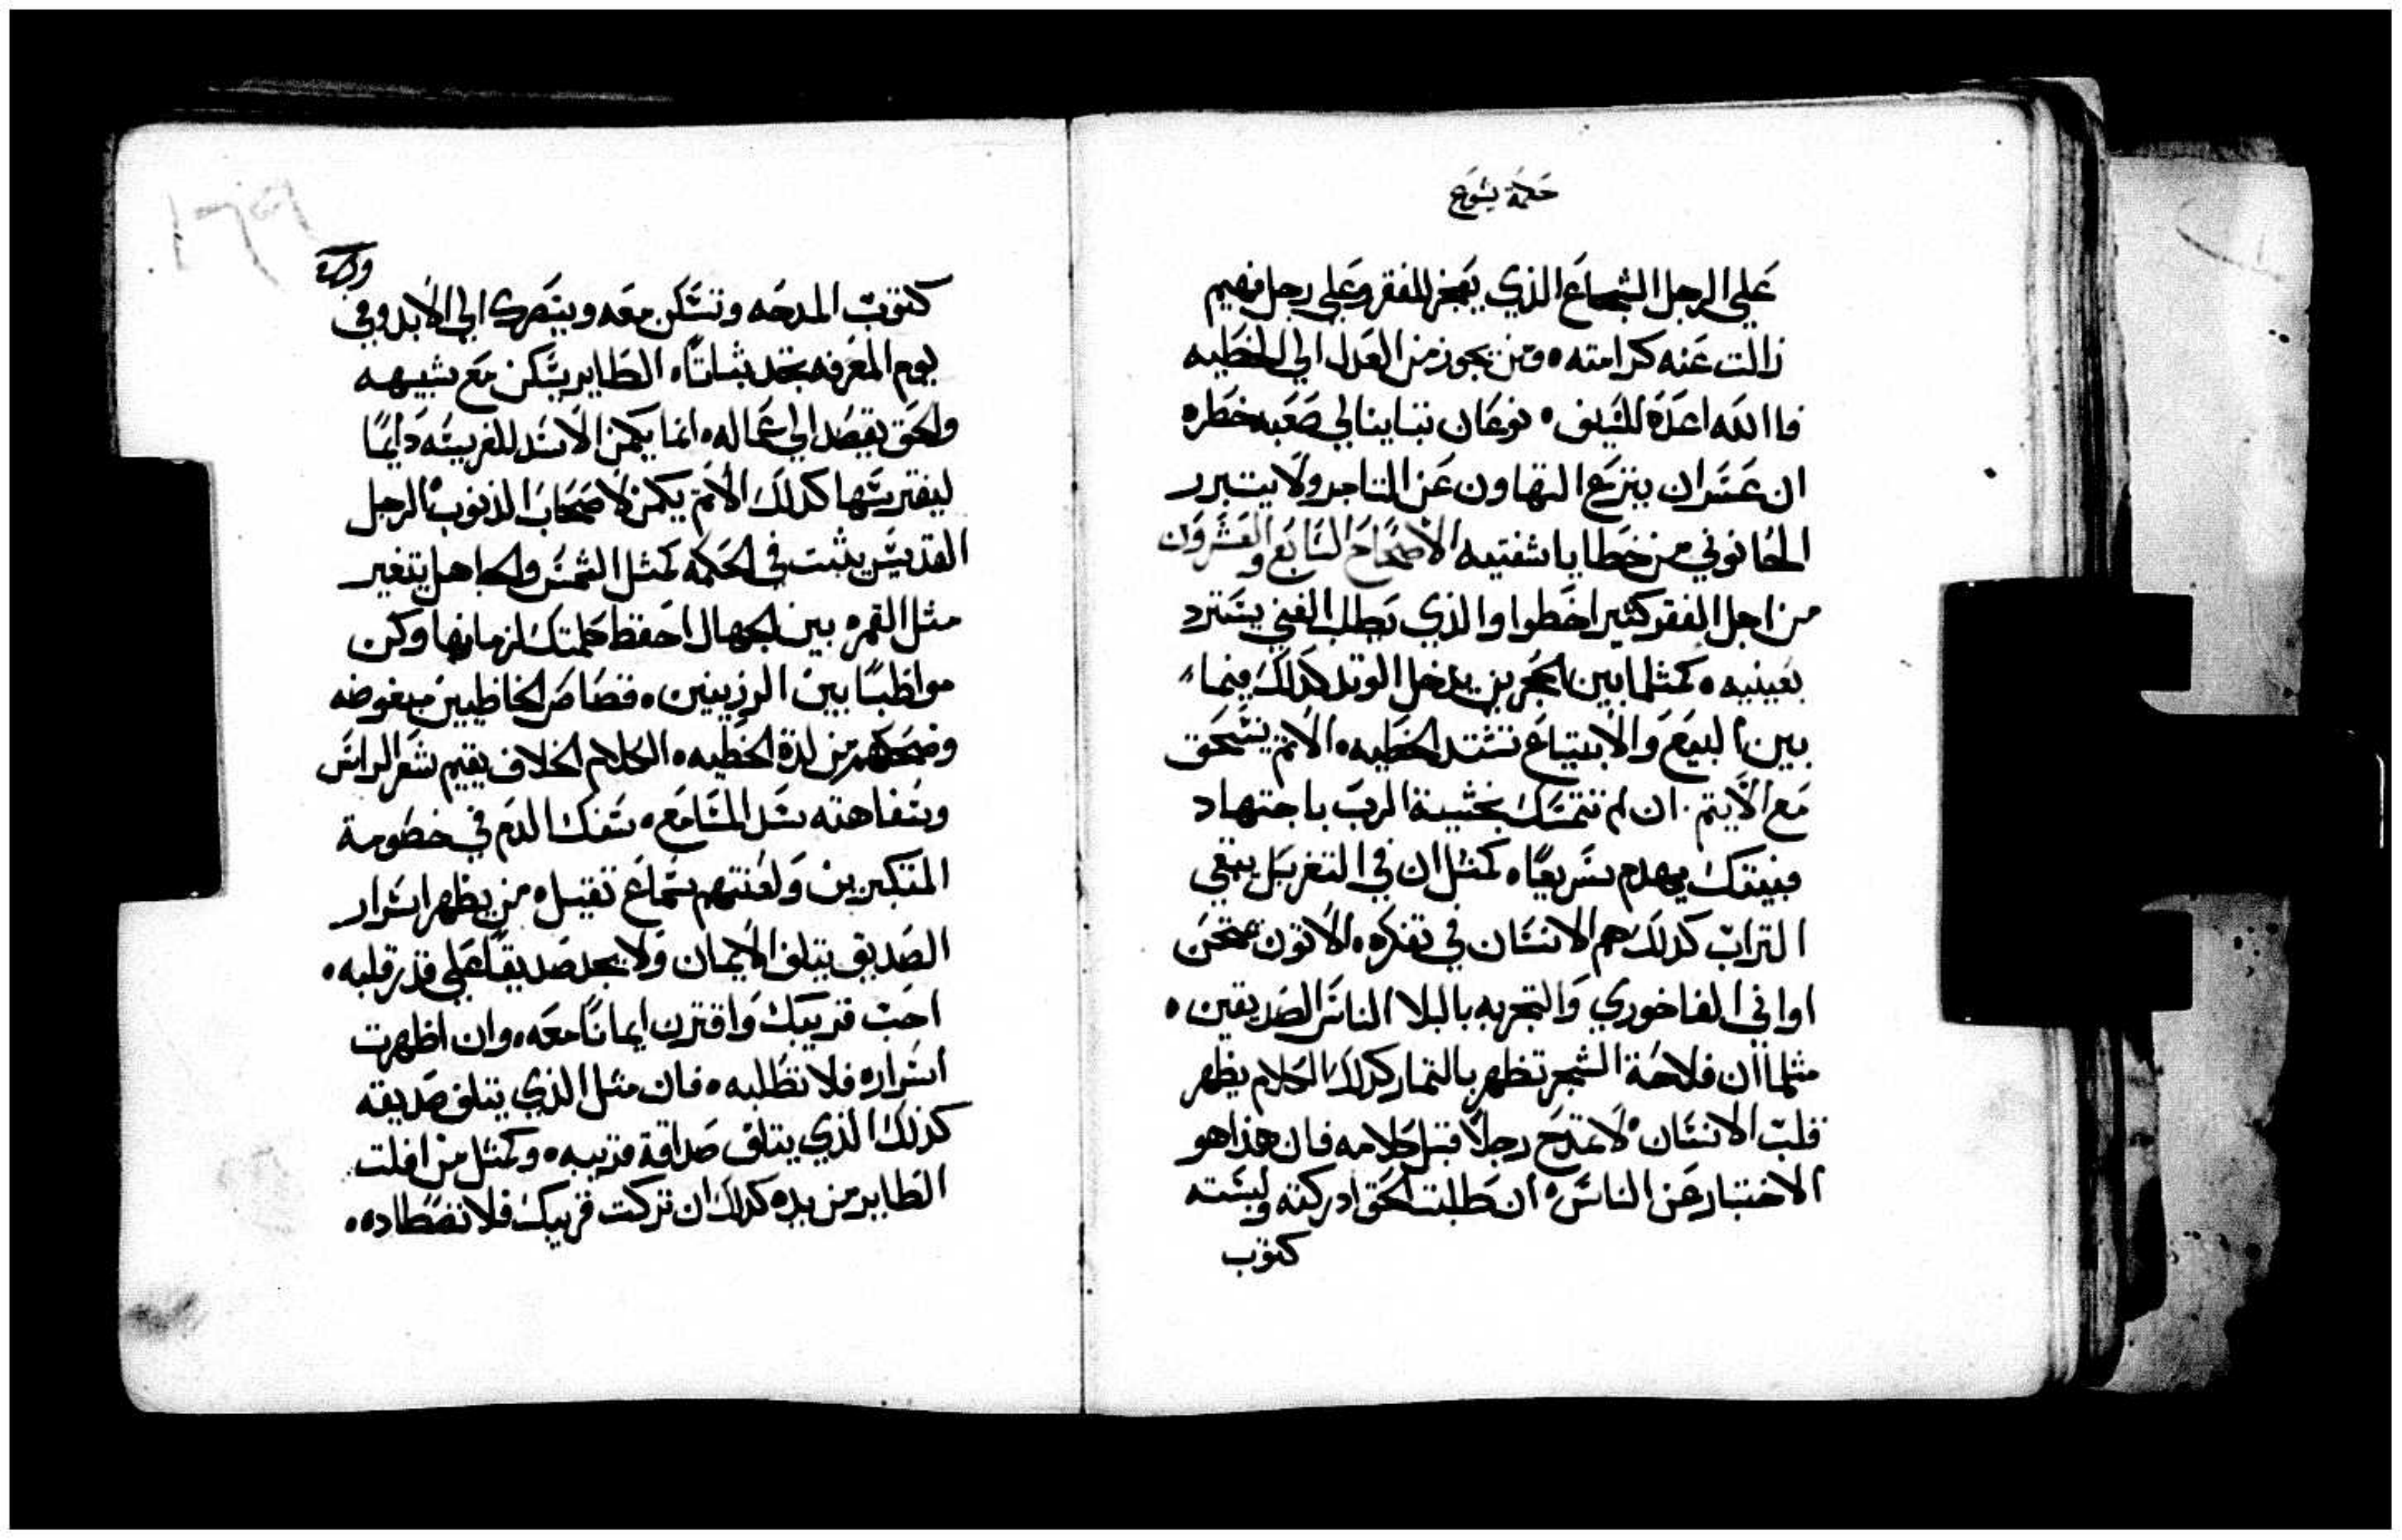 حكمة يشوع
علي الرجل الشجاع الذي يعجز للفقر وعلي رجل فهيم
زالت عنه كرامته ٠ ومن يجوز من العدل الي الخطيه
فاالله اعده للسيف ٠ نوعان تباينا لي صعبه خطره
ان عسر ان ينزع التهاون عن التاجر ولا يتبرر
الحانوني من خطايا شفتيه الاصحاح السابع والعشرون
من اجل الفقر كثير اخطوا والذي يطلب الغني يسترد
بعينيه ٠ كمثلما بين الحجرين يدخل الوتد كذلك فيما
بين البيع والابتياع تشتد الخطيه ٠ الاثم ينسحق
مع الاثيم ٠ ان لم تتمسك بخشية الرب باجتهاد
فبيتك يهدم سريعًا ٠ كمثل ان في التغربل يبقي
التراب كذلك هم الانسان في تفكره ٠ الاتون يمتحن
اواني الفاخوري والتجربه بالبلا الناس الصديقين ٠
مثلما ان فلاحة الشجر تظهر بالثمار كذلك الكلام يظهر
قلب الانسان ٠ لا تمدح رجلًا قبل كلامه فان هذا هو
الاختبار عن الناس ٠ ان طلبت الحق ادركته ولبسته
كثوب
كثوب المدحه وتسكن معه ويسترك الي الابد وفي
يوم المعرفه تجد ثباتًا ٠ الطاير يسكن مع شبيهه
والحق يقصد الي عماله ٠ انما يكمن الاسد للفريسه دايمًا
ليفترسها كذلك الاثم يكمن لاصحاب الذنوب ٠ الرجل
القديس يثبت في الحكمه كمثل الشمس والجاهل يتغير
مثل القمر ٠ بين الجهال احفظ كلمتك لزمانها وكن
مواظبًا بين الرزينين ٠ قصاص الخاطيين مبغوضه
وضحكهم من لذة الخطيه ٠ الكلام الحلاف يقيم شعر الراس
وسفاهته سد المسامع ٠ سفك الدم في خصومة
المتكبرين ولعنتهم سماع ثقيل ٠ من يظهر اسرار
الصديق يتلف الايمان ولا يجد صديقًا علي قدر قلبه ٠
احب قريبك واقترن ايمانًا معه ٠ وان اظهرت
اسراره فلا تطلبه ٠ فان مثل الذي يتلف صديقه
كذلك الذي يتلف صداقة قريبه ٠ وكمثل من افلت
الطاير من يده كذلك ان تركت قريبك فلا تصطاده ٠